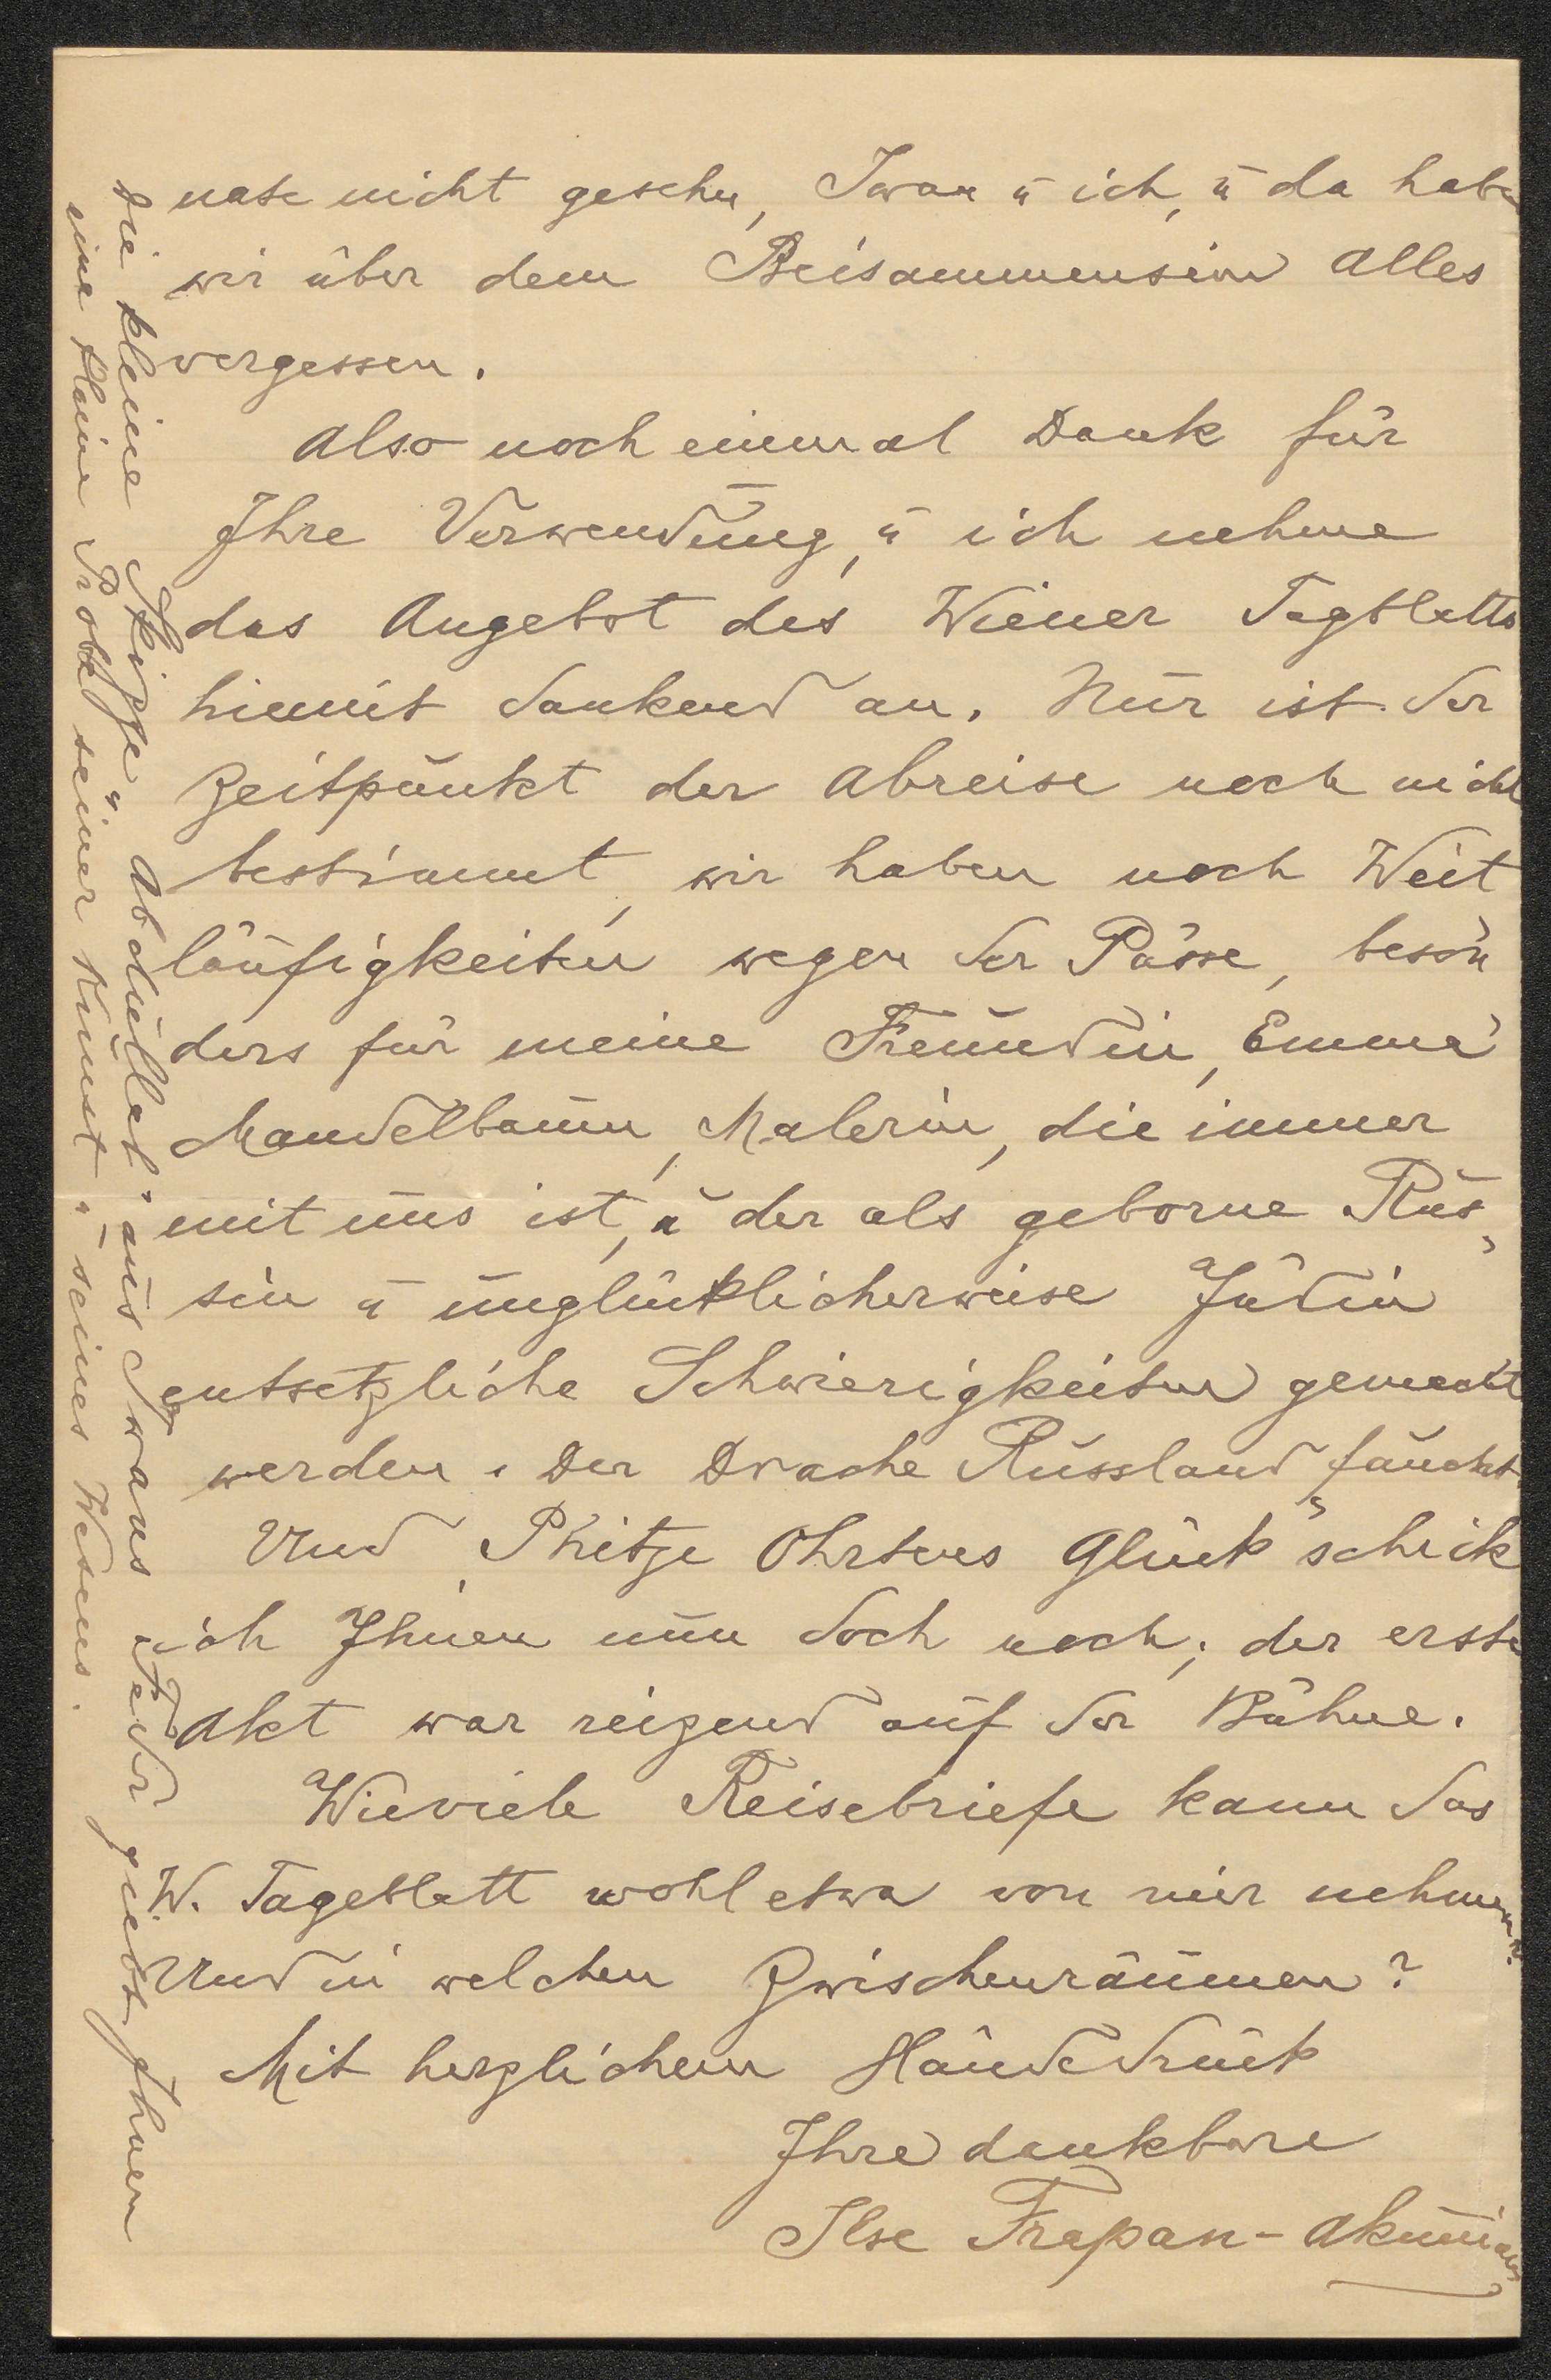 nate nicht gesehn, Iwan u ich, u da haben
wir über dem Beisammensein alles
vergessen.
Also noch einmal Dank für
Ihre Verwendung, u ich nehme
das Angebot des Wiener Tagblatts
hiemit dankend an. Nur ist der
Zeitpunkt der Abreise noch nicht
bestimmt, wir haben noch Weit
läufigkeiten wegen der Pässe, beson
ders für meine Freundin, Emma
Mandelbaum, Malerin, die immer
mit uns ist, u der als geborne Rus
sin u unglücklicherweise Jüdin
entsetzliche Schwierigkeiten gemacht
werden. Der Drache Russland faucht.
Und „Phitje Ohrtens Glück" schick
ich Ihnen nun doch noch; der erste
Akt war reizend auf der Bühne.
Wieviele Reisebriefe kann das
W. Tageblatt wohl etwa von mir nehmen?
Und in welchen Zwischenräumen?
Mit herzlichem Händedruck
Ihre dankbare
Ilse Frapan-Akunian
Die kleine Skizze „Abdullah" aus Iwans Feder giebt Ihnen
eine kleine Probe seiner Kunst u seines Wesens.